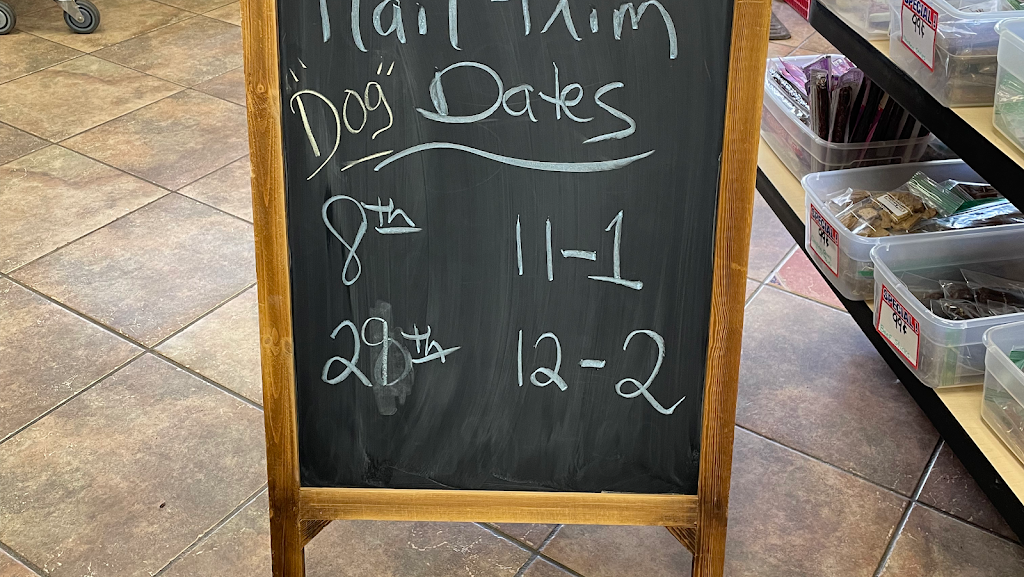 Nail Trim
"Dog" Dates
8th 11-1
28th 12-2
SPECIAL! 99¢
SPECIAL! 99¢
SPECIAL! 99¢